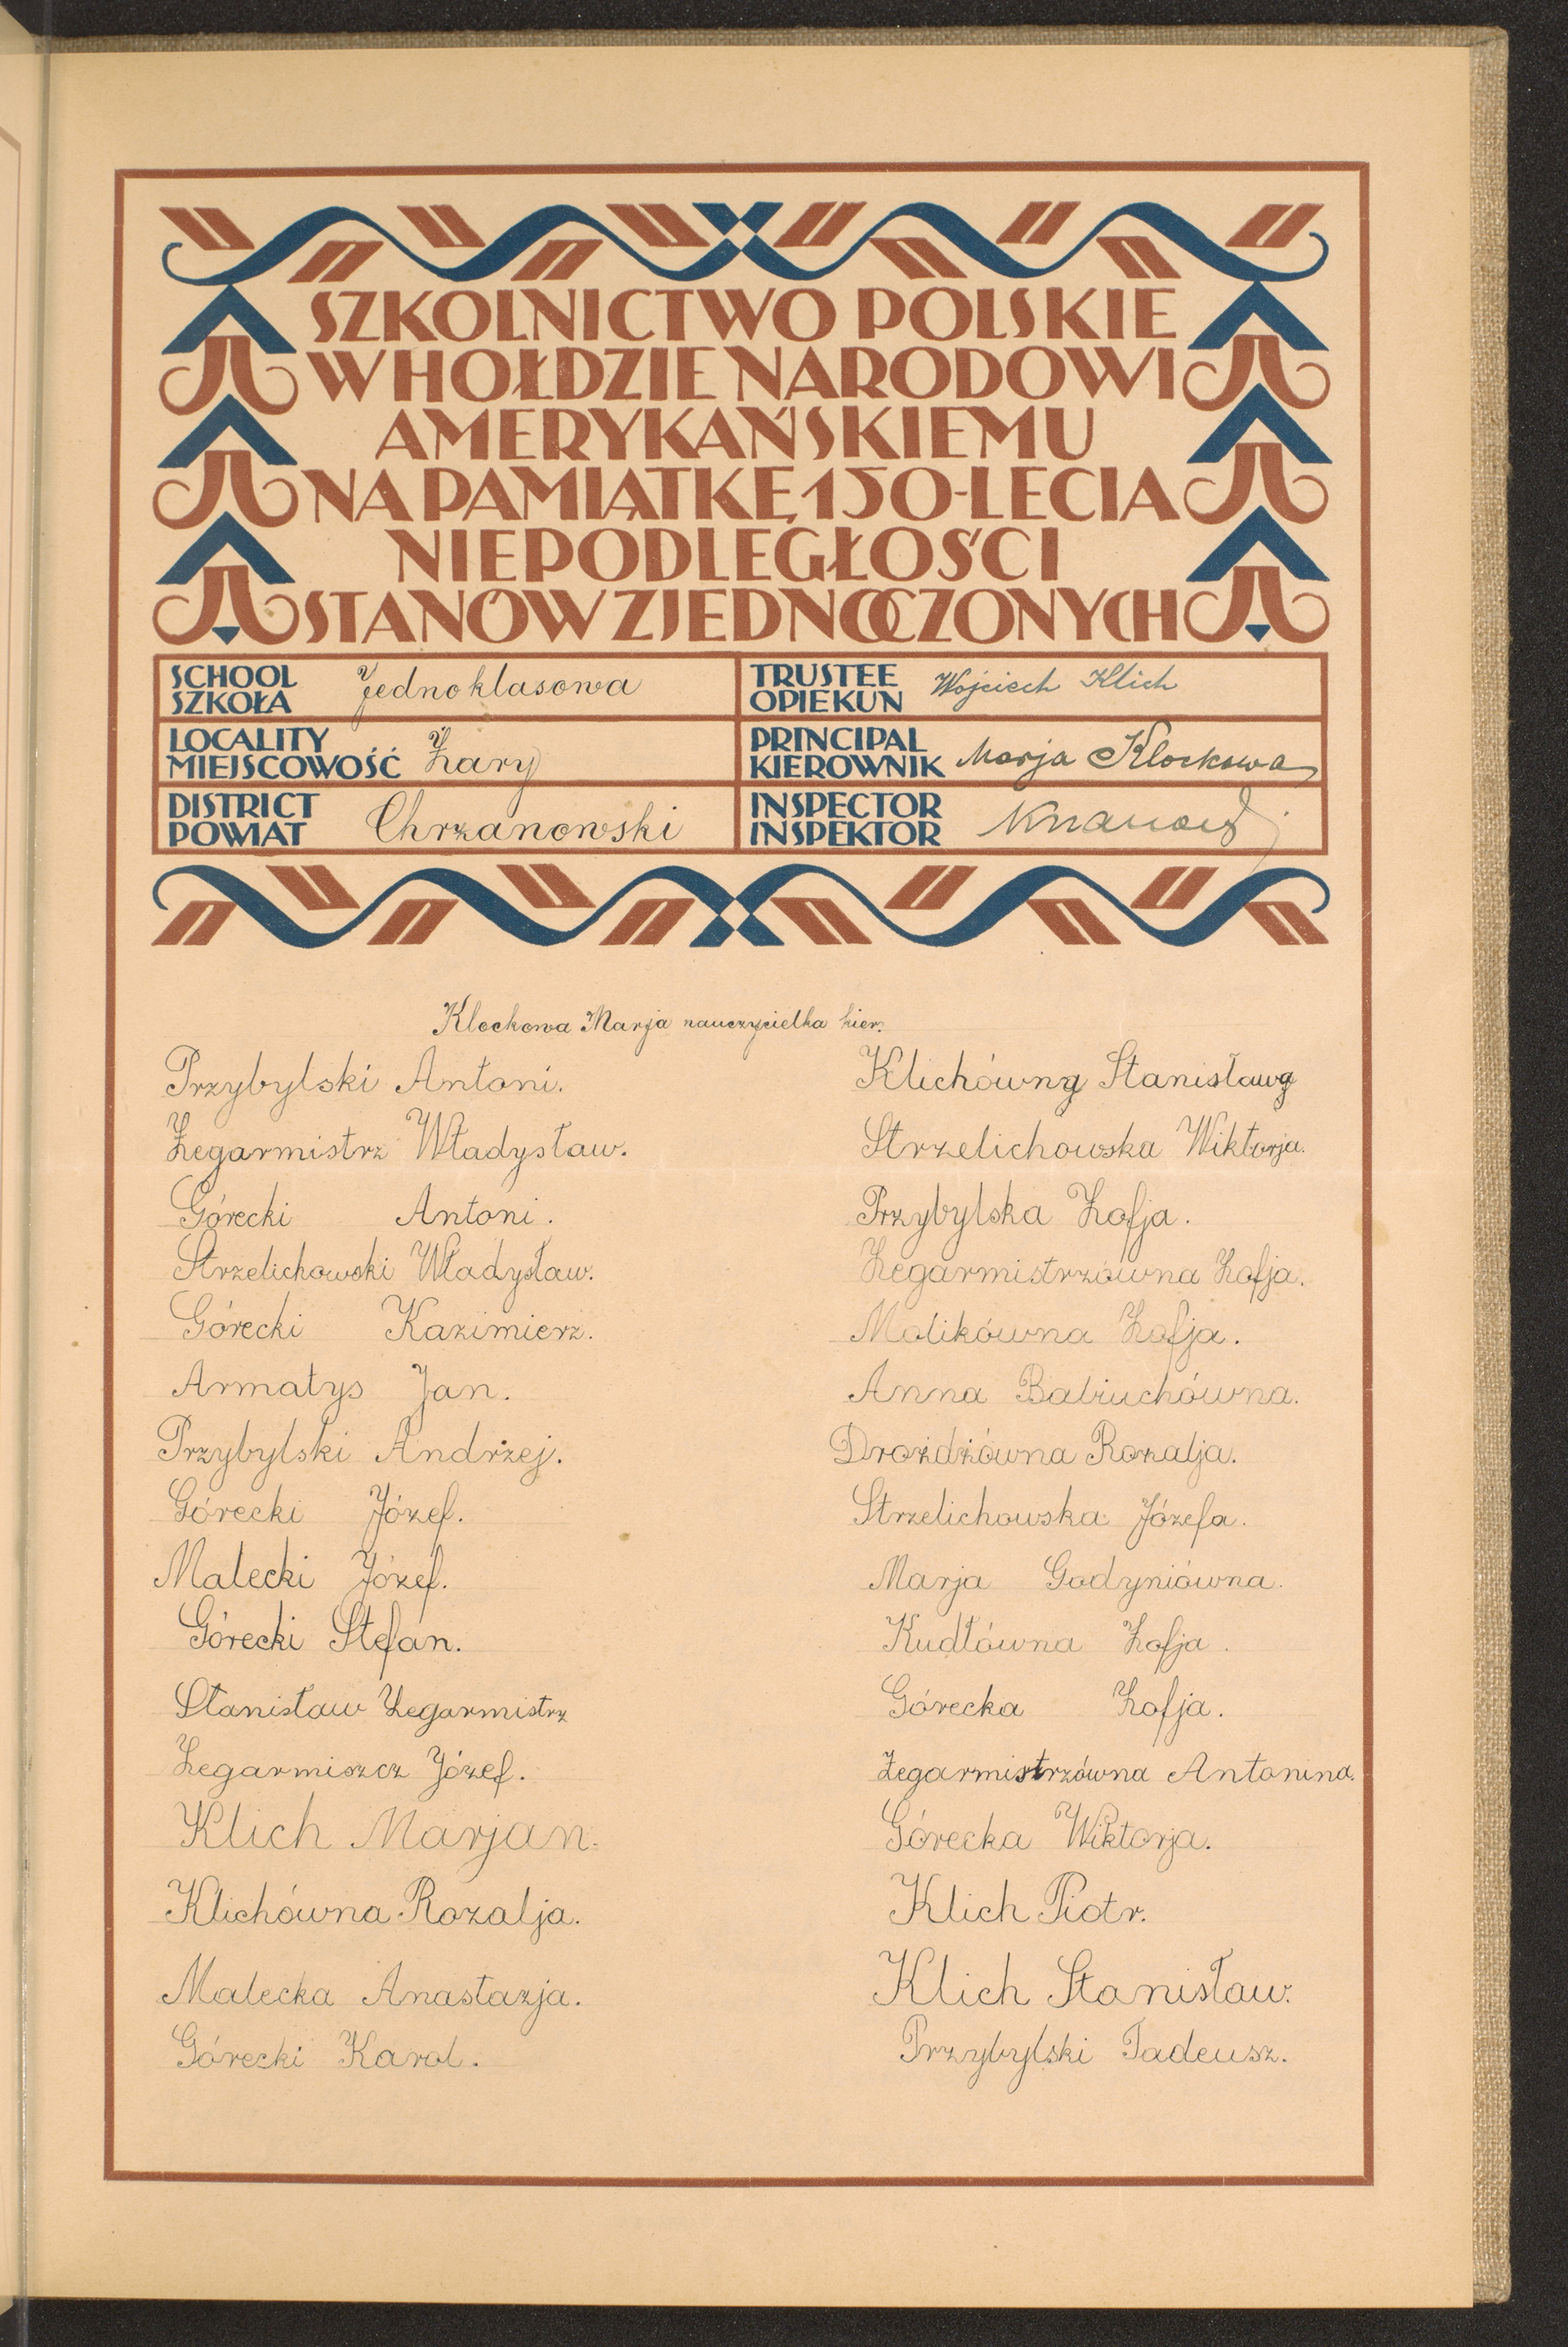 SZKOLNICTWO POLSKIE
W HOŁDZIE NARODOWI
AMERYKAŃSKIEMU
NA PAMIĄTKĘ 150-LECIA
NIEPODLEGŁOŚCI
STANÓW ZJEDNOCZONYCH
SCHOOL
SZKOŁA Jednoklasowa
TRUSTEE
OPIEKUN Wojciech Klich
LOCALITY
MIEJSCOWOŚĆ Żary
PRINCIPAL
KIEROWNIK Marja Klockowa
DISTRICT
POWIAT Chrzanowski
INSPECTOR
INSPEKTOR
Klockowa Marja nauczycielka kier.
Przybylski Antoni.
Zegarmistrz Władysław.
Górecki Antoni.
Strzelichowski Władysław.
Górecki Kazimierz.
Armatys Jan.
Przybylski Andrzej.
Górecki Józef.
Malecki Józef.
Górecki Stefan.
Stanisław Zegarmistrz
Zegarmiszcz Józef.
Klich Marjan.
Klichówna Rozalja.
Malecka Anastazja.
Górecki Karol.
Klichówna Stanisława
Strzelichowska Wiktorja.
Przybylska Zofja.
Zegarmistrzówna Zofja.
Malikówna Zofja.
Anna Babiuchówna.
Drożdżówna Rozalja.
Strzelichowska Józefa.
Marja Godyniówna.
Kudłówna Zofja.
Górecka Zofja.
Zegarmistrzówna Antonina.
Górecka Wiktorja.
Klich Piotr.
Klich Stanisław.
Przybylski Tadeusz.